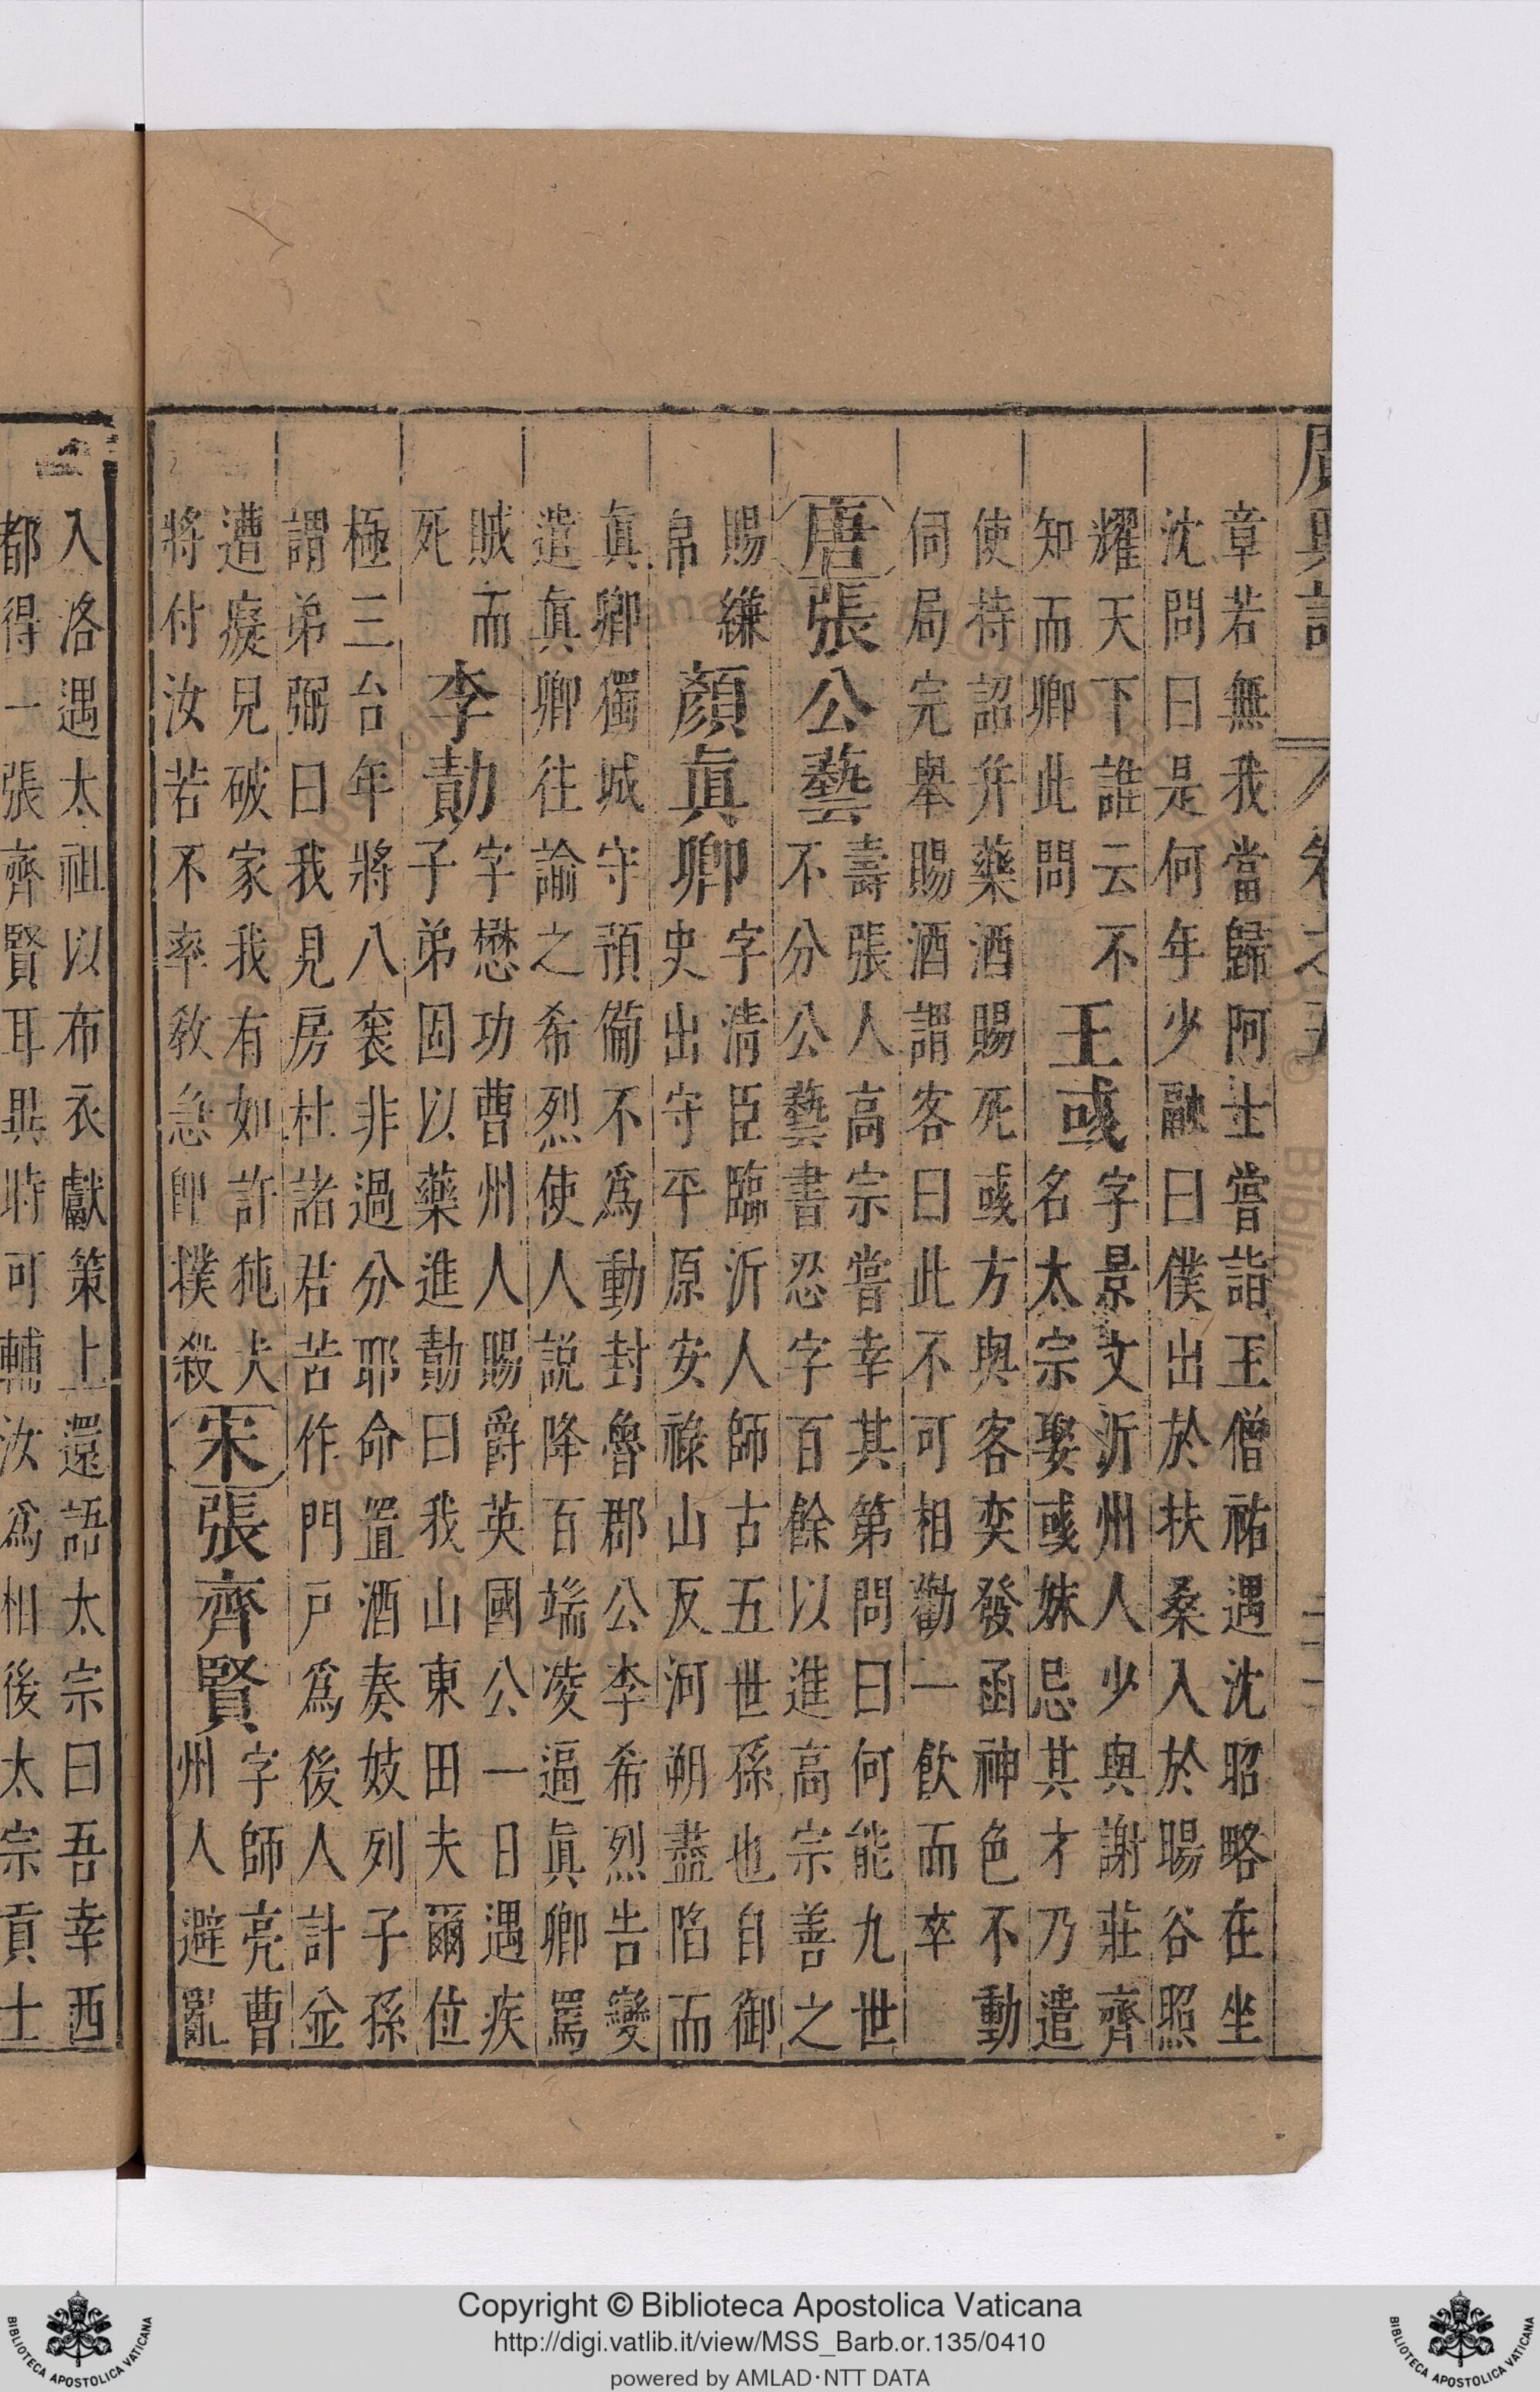 廣輿記
卷之五
章若無我當歸阿士嘗詣王僧祐遇沈昭略在坐
沈問曰是何年少融曰僕出於扶桑入於暘谷照
耀天下誰云不
知而卿此問
王彧
字景文沂州人少與謝莊齊
名太宗娶彧妹忌其才乃遣
使持詔并藥酒賜死彧方與客奕發函神色不動
伺局完舉賜酒謂客曰此不可相勸一飲而卒
唐張公藝
壽張人高宗嘗幸其第問曰何能九世
不分公藝書忍字百餘以進高宗善之
賜縑
帛
顏眞卿
字清臣臨沂人師古五世孫也自御
史出守平原安祿山反河朔盡陷而
眞卿獨城守預備不爲動封魯郡公李希烈告變
遣眞卿往諭之希烈使人說降百端凌逼眞卿罵
賊而
死
李勣
字懋功曹州人賜爵英國公一日遇疾
子弟固以藥進勣曰我山東田夫爾位
極三台年將八袠非過分耶命置酒奏妓列子孫
謂弟弼曰我見房杜諸君苦作門戶爲後人計並
遭癡見破家我有如許㹠犬
將付汝若不率敎急卽撲殺
宋張齊賢
字師亮曹
州人避亂
入洛遇太祖以布衣獻策上還語太宗曰吾幸西
都得一張齊賢耳異時可輔汝爲相後太宗貢士
Copyright © Biblioteca Apostolica Vaticana
http://digi.vatlib.it/view/MSS_Barb.or.135/0410
powered by AMLAD·NTT DATA
BIBLIOTECA APOSTOLICA VATICANA
BIBLIOTECA APOSTOLICA VATICANA